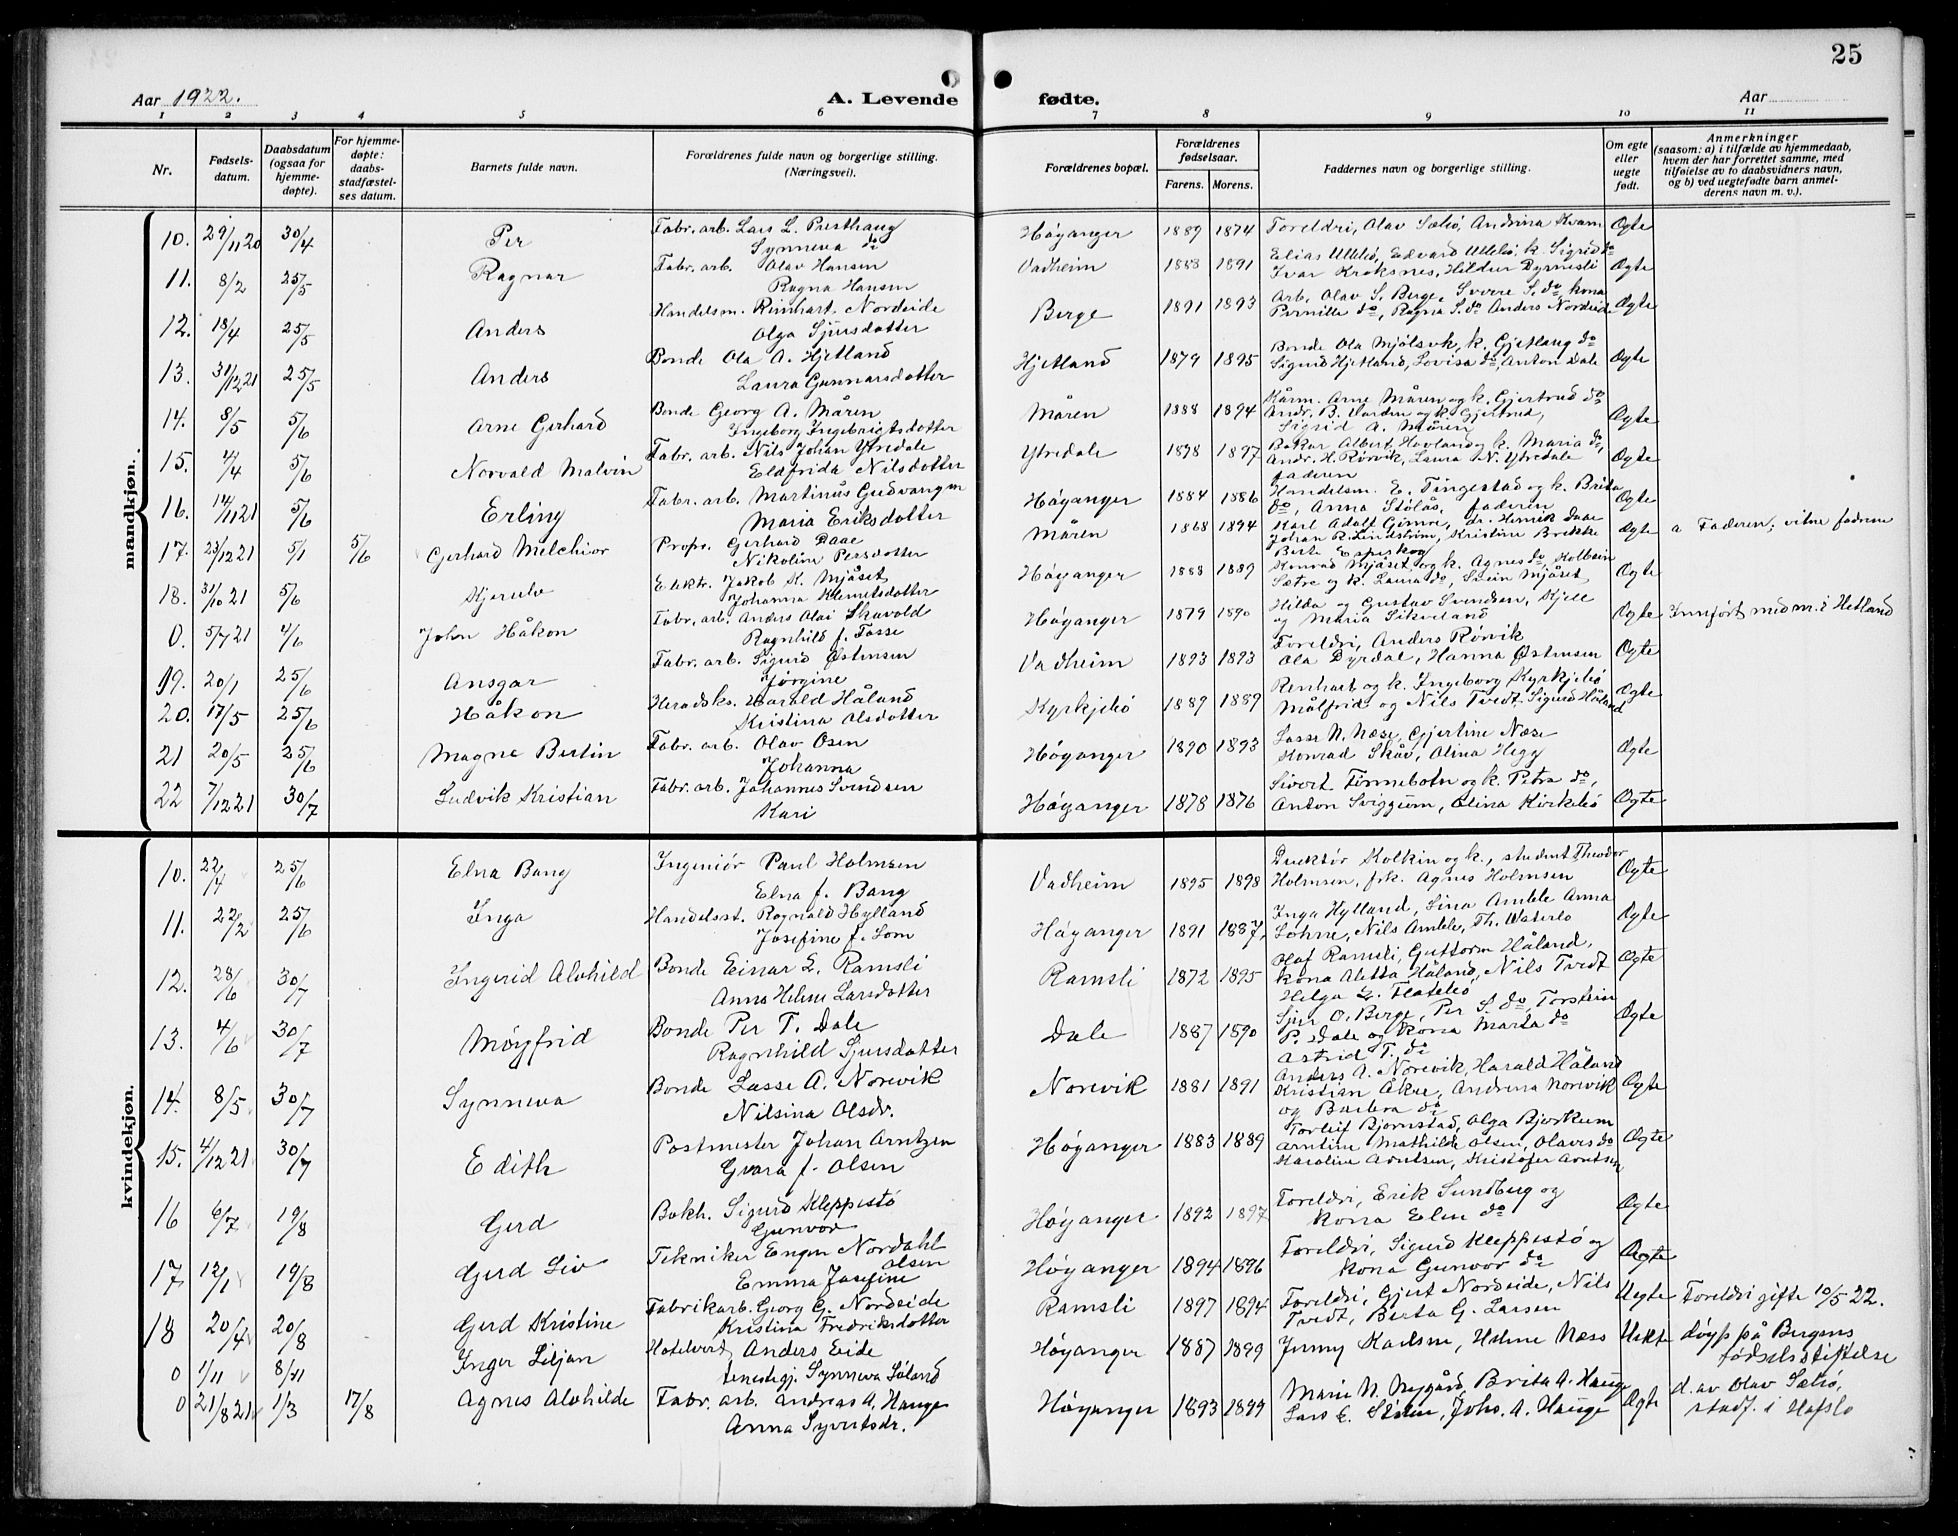 25
Aar 1922.
A. Levende fødte.
Aar
1 2 3 4 5 6 7 8 9 10 11
Nr.
Fødsels-
datum.
Daabsdatum
(ogsaa for
hjemme-
døpte).
For hjemme-
døpte:
daabs-
stadfæstel-
ses datum.
Barnets fulde navn.
Forældrenes fulde navn og borgerlige stilling.
(Næringsvei).
Forældrenes bopæl.
Forældrenes
fødselsaar.
Farens. Morens.
Faddernes navn og borgerlige stilling.
Om egte
eller
uegte
født.
Anmerkninger
(saasom: a) i tilfælde av hjemmedaab,
hvem der har forrettet samme, med
tilføielse av to daabsvidners navn,
og b) ved uegtefødte barn anmel-
derens navn m. v.).
mandkjøn.
10. 29/11 20 30/4 Per Fabr. arb. Lars L. Presthaug Høyanger 1889 1874 Foreldri, Olav Sæbø, Andrina Kvam Ogte
Synneva do
11. 8/2 25/5 Ragnar Fabr. arb. Olav Hansen Vadheim 1888 1891 Elias Ullebø, Edvard Ullebø, k. Sigrid do Ogte
Ragna Hansen Ivar Kroksnes, Hildur Dyrnesli
12. 18/4 25/5 Anders Handelsm. Rinhart Nordeide Berge 1891 1893 Arb. Olav S. Berge, Sverre S. do kona Ogte
Olga Sjursdotter Pernille do, Ragna S. do Anders Nordeide
13. 31/12 21 25/5 Anders Bonde Ola A. Hjetland Hjetland 1879 1895 Bonde Ola Mjølsvk, k. Gjetlaug do Ogte
Laura Gunnarsdotter Sigurd Hjetland, Lovisa do, Anton Dale
14. 8/5 5/6 Arne Gerhard Bonde Georg A. Måren Måren 1888 1894 Kårm. Arne Måren og k. Gjertrud do Ogte
Ingeborg Ingebrigtsdotter Andr. B. Varden og k. Gjertrud,
Sigrid A. Måren
15. 4/4 5/6 Norvald Malvin Fabr. arb. Nils Johan Ytredale Ytredale 1898 1897 Bakar Albert Hovland og k. Maria do, Ogte
Eldfrida Nilsdotter Andr. H. Rørvik, Laura N. Ytredale
faderen
16. 14/11 21 5/6 Erling Fabr. arb. Martinus Gudvangen Høyanger 1884 1886 Handelsm. E. Tingestad og k. Brita Ogte
Maria Eriksdotter do, Anna Stølås, faderen
17. 23/12 21 5/1 5/6 Gerhard Melchior Propr. Gerhard Daae Måren 1868 1894 Karl Adolf Gimre, dr. Henrik Daae Ogte a Faderen; vitne fadrene
Nikoline Persdotter Johan R. Lindstrøm, Kristine Brekke
Berte Espeskog
18. 31/10 21 5/6 Kjerulv Elektr. Jakob K. Mjåset Høyanger 1888 1889 Konrad Mjåset og k. Agnes do, Kolbein Ogte
Johanna Klemetsdotter Sætre og k. Laura do, Svein Mjåset
0. 5/7 21 4/6 John Håkon Fabr. arb. Anders Olai Skavold Høyanger 1879 1890 Hilda og Gustav Svendsen, Kjell Ogte Innført med nr. i Hetland
Ragnhild f. Fosse og Maria Sikveland
19. 20/1 25/6 Ansgar Fabr. arb. Sigurd Østensen Vadheim 1893 1893 Foreldri, Anders Rørvik Ogte
Jørgine Ola Dyrdal, Hanna Østensen
20. 17/5 25/6 Håkon Heradsks. Harald Håland Kyrkjebø 1889 1889 Renhart og k. Ingeborg Kyrkjebø Ogte
Kristina Olsdotter Målfrid og Nils Tvedt. Sigurd Håland
21 20/5 25/6 Magne Bertin Fabr. arb. Olav Osen Høyanger 1890 1893 Lasse N. Næse, Gjertine Næse Ogte
Johanna Konrad Skåv, Olina Hegg
22 7/12 21 30/7 Ludvik Kristian Fabr. arb. Johannes Svendsen Høyanger 1878 1876 Sivert Finnebotn og k. Petra do, Ogte
Kari Anton Sviggum, Olina Kirkebø
kvindekjøn.
10. 22/4 25/6 Elna Bang Ingeniør Paul Holmsen Vadheim 1895 1898 Direktør Kolkin og k., student Theodor Ogte
Elna f. Bang Holmsen, frk. Agnes Holmsen
11. 22/2 25/6 Inga Handelsst. Ragnald Hylland Høyanger 1891 1887, Inga Hylland, Lina Amble Anna Ogte
Josefine f. Lom Lohne, Nils Amble, Th. Waterlo
12. 28/6 30/7 Ingerid Alvhild Bonde Einar L. Ramsli Ramsli 1872 1895 Olaf Ramsli, Guttorm Håland, Ogte
Anna Helene Larsdotter kona Aletta Håland, Nils Tvedt
Helga L. Flatebø
13. 4/6 30/7 Møyfrid Bonde Per T. Dale Dale 1887 1890 Sjur O. Berge, Per S. do, Torstein Ogte
Ragnhild Sjursdotter P. Dale og kona Marta do
Astrid T. do
14. 8/5 30/7 Synneva Bonde Lasse A. Norevik Norevik 1881 1891 Anders A. Norevik, Harald Håland Ogte
Nilsina Olsdr. Kristian Åkre, Andrina Norevik
og Barbra do
15. 4/12 21 30/7 Edith Postmester Johan Arntzen Høyanger 1883 1889 Torleif Bjørnstad, Olga Bjørkum Ogte
Gvara f. Olsen Arntine Mathilde Olsen, Olavis do
Karoline Arntsen, Kristofer Arntsen
16 6/7 19/8 Gerd Bokh. Sigurd Kleppestø Høyanger 1892 1897 Foreldri, Erik Sundberg og Ogte
Gunvor kona Elen do
17 12/1 19/8 Gerd Liv Tekniker Engen Nordahl Olsen Høyanger 1894 1896 Foreldri, Sigurd Kleppestø og Ogte
Emma Josefine kona Gunvor do
18 20/4 20/8 Gerd Kristine Fabrikarb. Georg G. Nordeide Ramsli 1897 1894 Foreldri, Gjert Nordeide, Nils Uegte Foreldri gifte 10/5 22.
Kristina Fredriksdotter Tvedt, Berta G. Larsen
0 1/11 8/11 Inger Liljan Hotelvert Anders Eide Høyanger 1887 1899 Jenny Karlsen, Helene Næss Uekte døyp på Bergens
tenestegj. Synneva Løland fødselsstiftelse
0 21/8 21 1/3 17/8 Agnes Alvhilde Fabr. arb. Andreas A. Hauge Høyanger 1893 1899 Marie N. Nygård, Brita A. Hauge Ogte d. av Olav Sæbø,
Anna Syvertsdr. Lars E. Stølen, Johs. A. Hauge stadf. i Hafslo